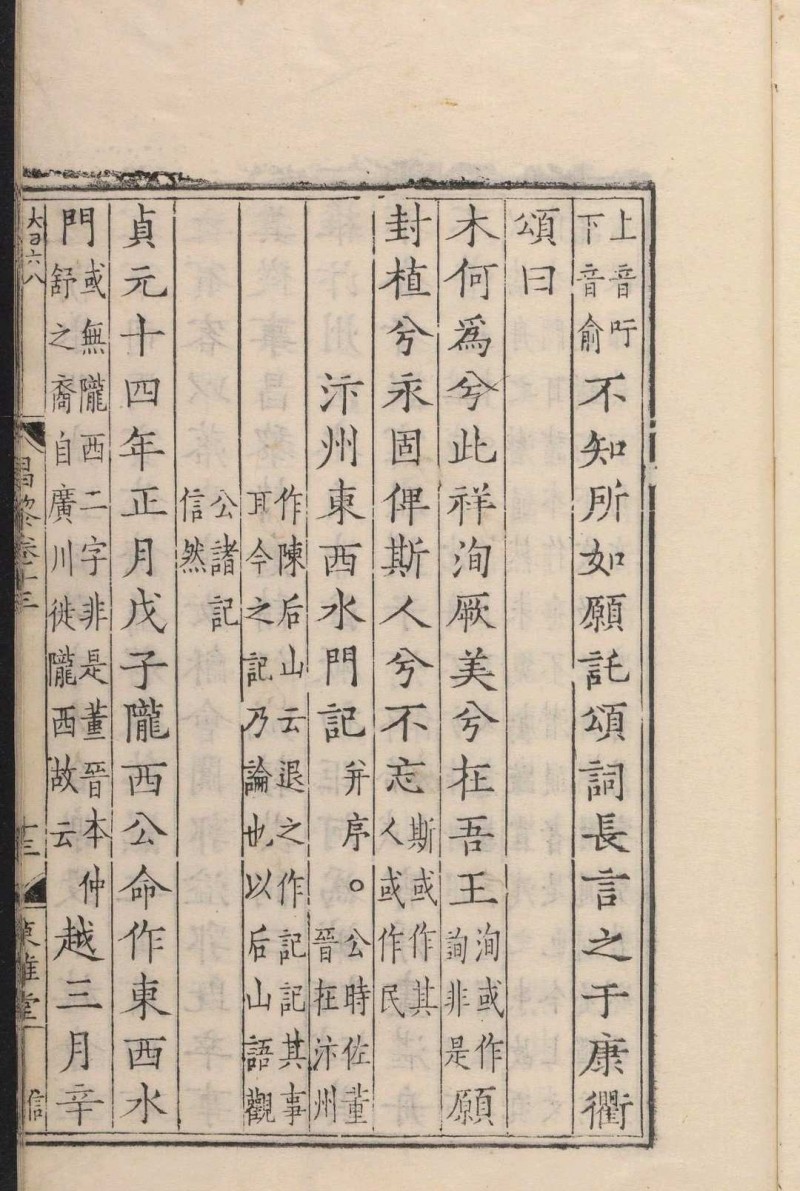 上音吁下音俞不知所如願託頌詞長言之于康衢
頌曰
木何爲兮此祥洵厥美兮在吾王洵或作詢非是願
封植兮永固俾斯人兮不忘斯或作其人或作民
汴州東西水門記并序。公時佐董晉在汴州
作陳后山云退之作記記其事耳今之記乃論也以后山語觀
公諸記信然
貞元十四年正月戊子隴西公命作東西水
門或無隴西二字非是董晉本仲舒之裔自廣川徙隴西故云越三月辛
昌黎卷十三
十三
東雅堂
信